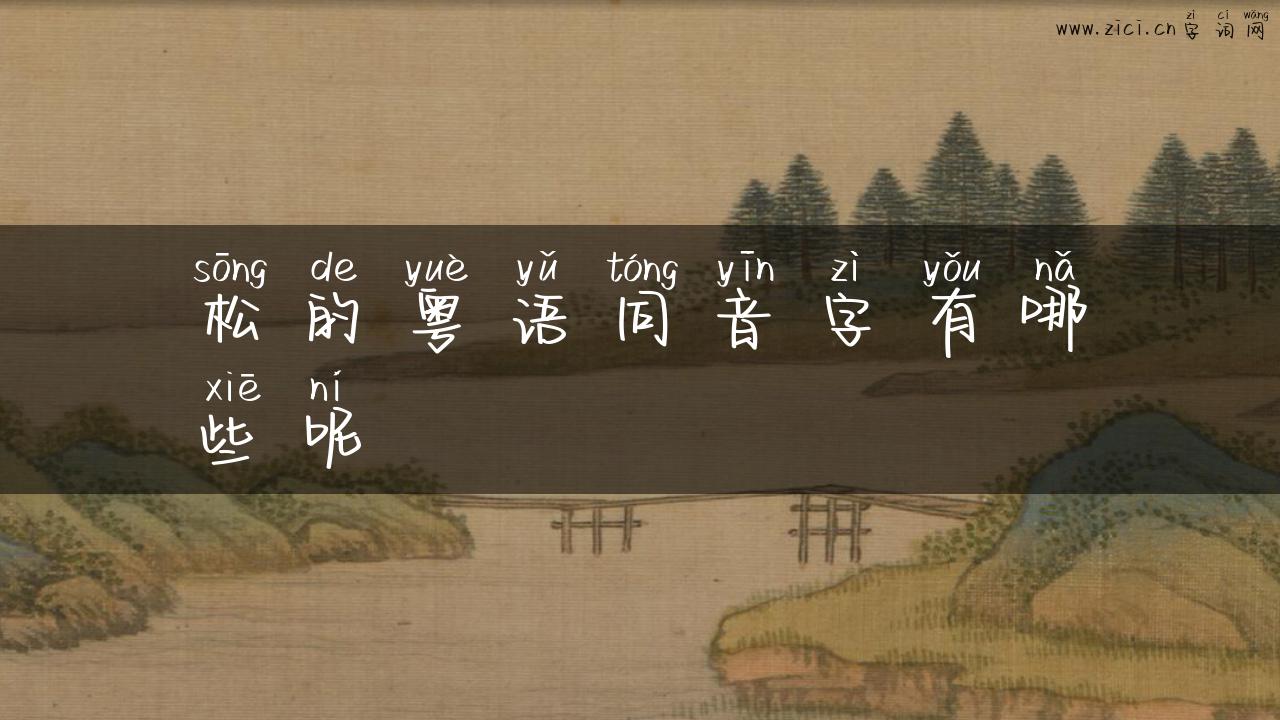 zì cí wǎng
www.zici.cn 字词网
sōng de yuè yǔ tóng yīn zì yǒu nǎ
松的粤语同音字有哪
xiē ní
些呢